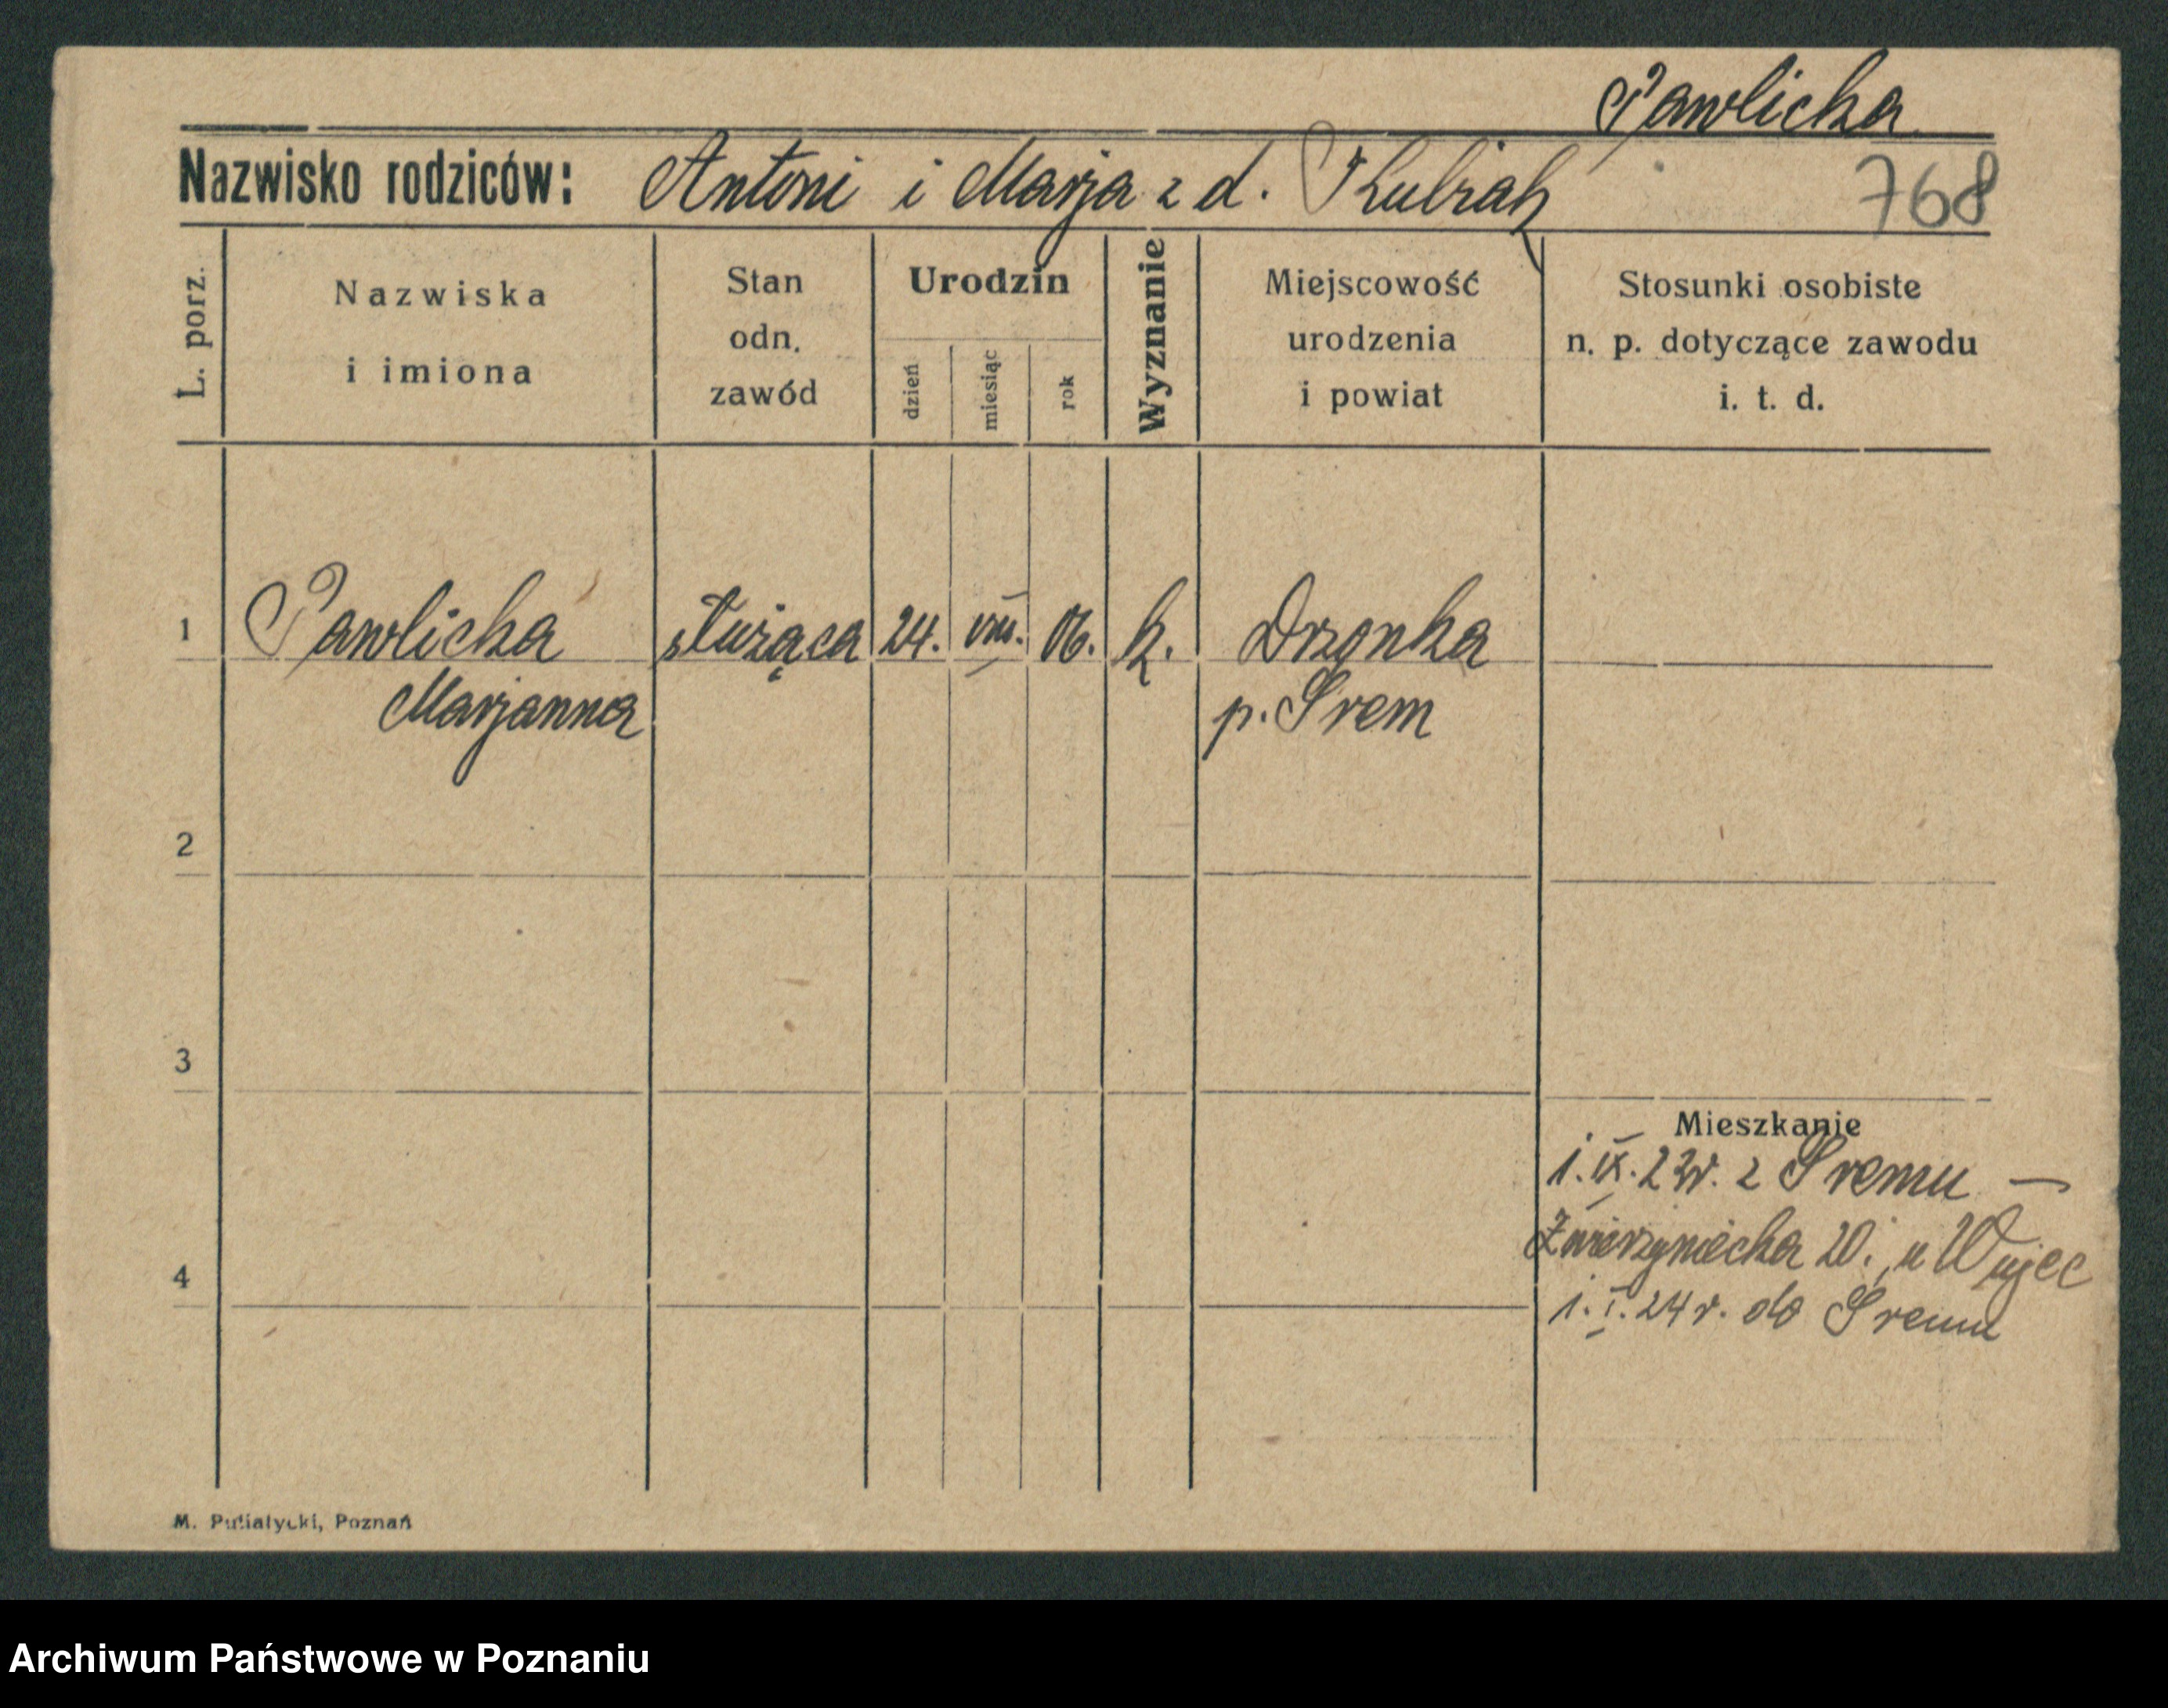 Pawlicka
Nazwisko rodziców: Antoni i Marja z d. Kubiak
768
L. porz.
Nazwiska
i imiona
Stan
odn.
zawód
Urodzin
dzień
miesiąc
rok
Wyznanie
Miejscowość
urodzenia
i powiat
Stosunki osobiste
n. p. dotyczące zawodu
i. t. d.
1 Pawlicka służąca 24. VIII. 06. k. Drzonka
Marjanna p. Śrem
2
3
Mieszkanie
1. IX. 23r. z Śremu —
Zwierzyniecka 20. u Wujec
4
1. I. 24 r. do Śremu
M. Putiatycki, Poznań
Archiwum Państwowe w Poznaniu